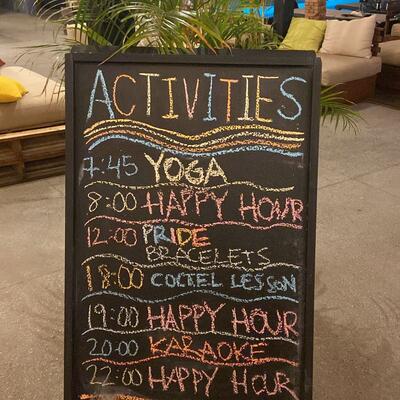 ACTIVITIES
7:45 YOGA
8:00 HAPPY HOUR
12:00 PRIDE
BRACELETS
18:00 COCTEL LESSON
19:00 HAPPY HOUR
20:00 KARAOKE
22:00 HAPPY HOUR